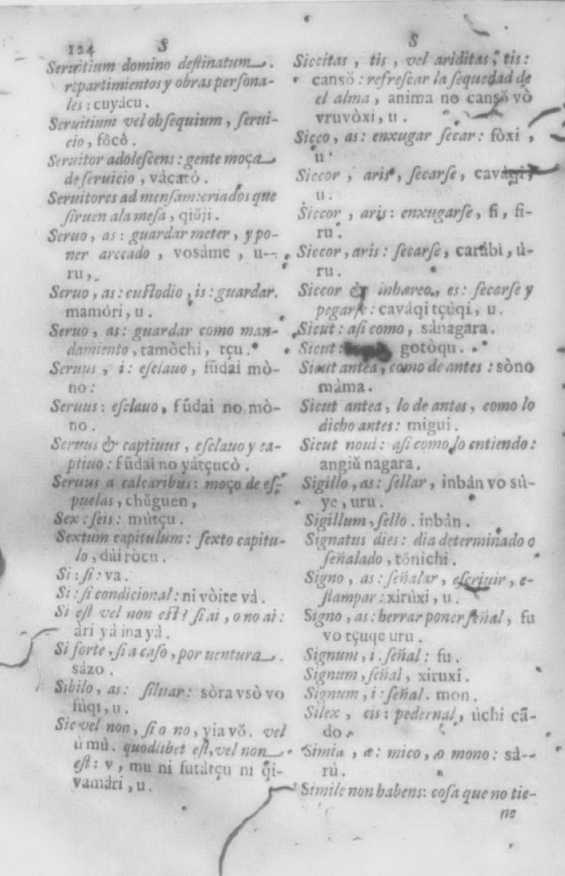 124 S
Seruitium domino deſtinatum.
repartimientos y obras perſona-
les: cuyàcu.
Seruitium vel obſequium, ſerui-
cio, fòcò.
Seruitor adoleſcens: gente moça
de ſeruicio, vàcatò.
Seruitores ad menſam: criados que
ſiruen a la meſa, qiŭji.
Seruo, as: guardar meter, y po-
ner arecado, vosàme, u--
ru,
Seruo, as: cuſtodio, is: guardar.
mamóri, u.
Seruo, as: guardar como man-
damiento, tamòchi, tçu.
Seruus, i: eſclauo, fŭdai mò-
no:
Seruus: eſclauo, fŭdai no mò-
no.
Seruus & captiuus, eſclauo y ca-
ptiuo: fŭdai no yàtçucò.
Seruus a calcaribus: moço de eſ-
puelas, chŭguen,
Sex: ſeis: mùtçu.
Sextum capitulum: ſexto capitu-
lo, dài ròcu.
Si: ſi: va.
Si: ſi condicional: ni vòite và.
Si eſt vel non eſt? ſi ai, o no ai:
àri yà ina yà.
Si forte, ſi a caſo, por uentura.
sàzo.
Sibilo, as: ſiluar: sòra vsò vo
fùqi, u.
Sic vel non, ſi o no, yia vŏ. vel
ù mù. quodlibet eſt, vel non
eſt: v, mu ni futàtçu ni qi-
vamàri, u.
S
Siccitas, tis, vel ariditas, tis:
cansŏ: refreſcar la ſequedad de
el alma, anima no cansŏ vò
vruvòxi, u.
Sicco, as: enxugar ſecar: fòxi,
u.
Siccor, aris, ſecarſe, cavàqi,
u.
Siccor, aris: enxugarſe, fi, fi-
ru.
Siccor, aris: ſecarſe, caràbi, ù-
ru.
Siccor & inhæreo, es: ſecarſe y
pegarſe: cavàqi tçùqi, u.
Sicut: aſi como, sànagara.
Sicut: gotòqu.
Sicut antea, como de antes: sòno
màma.
Sicut antea, lo de antes, como lo
dicho antes: migui.
Sicut noui: aſi como lo entiendo:
angiŭ nagara.
Sigillo, as: ſellar, inbàn vo sù-
ye, uru.
Sigillum, ſello. inbàn.
Signatus dies: dia determinado o
ſeñalado, tŏnichi.
Signo, as: ſeñalar, eſcriuir, e-
ſtampar: xirùxi, u.
Signo, as: herrar poner ſeñal, fu
vo tçuqe uru.
Signum, i. ſeñal: fu.
Signum, ſeñal, xiruxi.
Signum, i: ſeñal. mon.
Silex, cis: pedernal, ùchi cã-
do.
Simia, æ: mico, o mono: sà--
rù.
Simile non habens: coſa que no tie-
ne